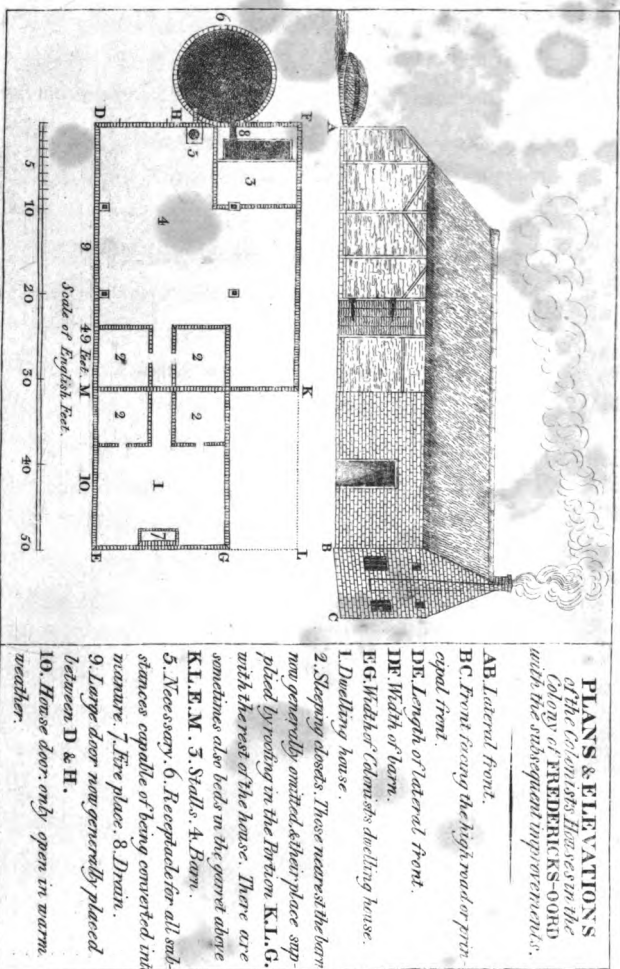 PLANS & ELEVATIONS
of the Colonists Houses in the
Colony of FREDERICKS-OORD
with the subsequent improvements.
AB. Lateral front.
BC. Front facing the high road or prin-
cipal front.
DE. Length of lateral front.
DF. Width of barn.
EG. Width of Colonists dwelling house.
1. Dwelling house.
2. Sleeping closets. Those nearest the barn
now generally omitted, & their place sup-
plied by roofing in the Portion K.L.G.
with the rest of the house. There are
sometimes also beds in the garret above
K.L.E.M. 3. Stalls. 4. Barn.
5. Necessary. 6. Receptacle for all sub-
stances capable of being converted into
manure. 7. Fire place. 8. Drain.
9. Large door now generally placed
between D & H.
10. House door, only open in warm
weather.
A
B
C
6
F
K
L
8
3
H
5
4
2
2
2
2
1
7
G
D
9
49 Feet.
M
10.
E
5
10
20
30
40
50
Scale of English Feet.